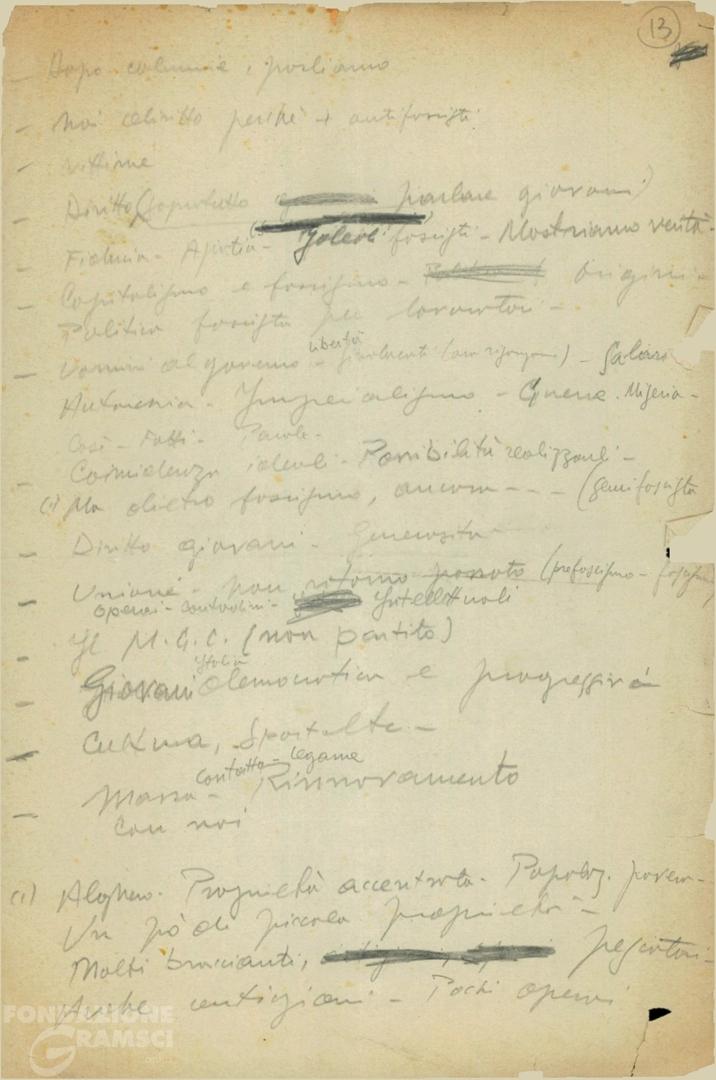 13
- Dopo calunnie, parliamo
- Noi diritto perché + antifascisti
- vittime
- Diritto (soprattutto parlare giovani)
Fiducia - Apatia - (1) Ideali fascisti - Mostriamo verità -
- Capitalismo e fascismo - origini -
Politica fascista per lavoratori -
- Uomini al governo - libertà (ora ) - Salari
Autarchia - Imperialismo - Guerra. Miseria -
Così - Fatti - Parole -
Coincidenza ideali - Possibilità realizzarli -
(1) Ma dietro fascismo, ancora - - - (gerifascista
- Diritto giovani - Generosità
- Unione - non ritorno passato (prefascismo - fascismo)
operai - contadini - Intellettuali
- Il M.G.C. (non partito)
- Giovani Italia democratica e progressiva
- Cultura, Sport etc -
- Massa - contatto - legame Rinnovamento
- Con noi
(1) Alghero. Proprietà accentrata. Popolaz. povera -
Un pò di piccola proprietà -
Molti braccianti, pescatori -
Anche artigiani - Pochi operai
FONDAZIONE
GRAMSCI